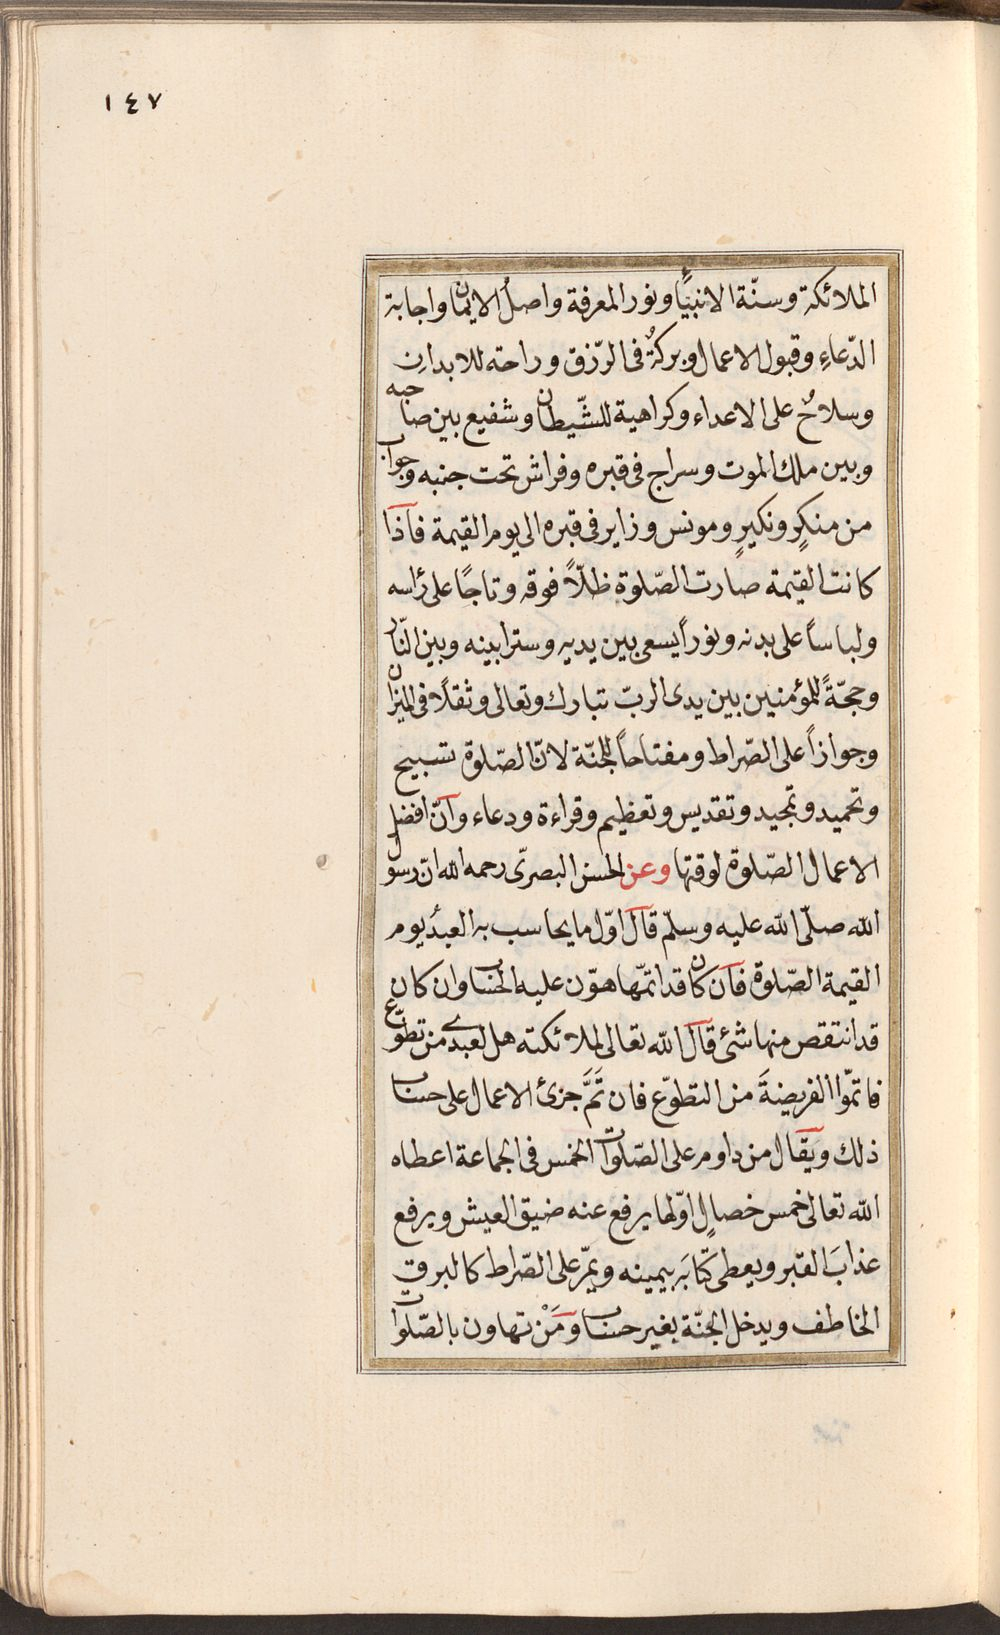 ١٤٧
الملائكة وسنّة الانبيأ ونور المعرفة واصلُ الايمان واجابة
الدّعاءِ وقبول الاعمال وبركةٌ فى الرّزق وراحته للابدان
وسلاحٌ على الاعداء وكراهية للشّيطان وشفيع بين صاحبه
وبين ملك الموت وسراج فى قبره وفراش تحت جنبه وجواب
من منكرٍ ونكيرٍ ومونس وزاير فى قبره الى يوم القيمة فاذا
كانت القيمة صارت الصّلوة ظلّاً فوقه وتاجًا على رأسه
ولباساً على بدنه ونوراً يسعى بين يديه وسترا بينه وبين النّار
وحجّةً للمؤمنين بين يدى الربّ تبارك وتعالى وثقلًا فى الميزان
وجوازاً على الصّراط ومفتاحاً للجنّة لانّ الصّلوة تسبيح
وتحميد وتمجيد وتقديس وتعظيم وقراءة ودعاء وانّ افضل
الاعمال الصّلوة لوقتها وعن الحسن البصرّى رحمه الله انّ رسول
الله صلّى الله عليه وسلّم قال اوّل ما يحاسب به العبدُ يوم
القيمة الصّلوة فان كان قد اتمّها هوّن عليه الحساب وان كان
قد انتقص منها شئ قال الله تعالى لملائكته هل لعبدى من تطوّع
فاتمّوا الفريضةَ من التطوّع فان تَمَّ جزئ الاعمال على حساب
ذلك ويقال من داوم على الصّلوات الخمس فى الجماعة اعطاه
الله تعالى خمس خصالٍ اوّلها يرفع عنه ضيق العيش ويرفع
عذابَ القبر ويعطى كتابَه بيمينه ويمّر على الصّراط كالبرق
الخاطف ويدخل الجنّة بغير حساب ومَنْ تهاون بالصّلوات